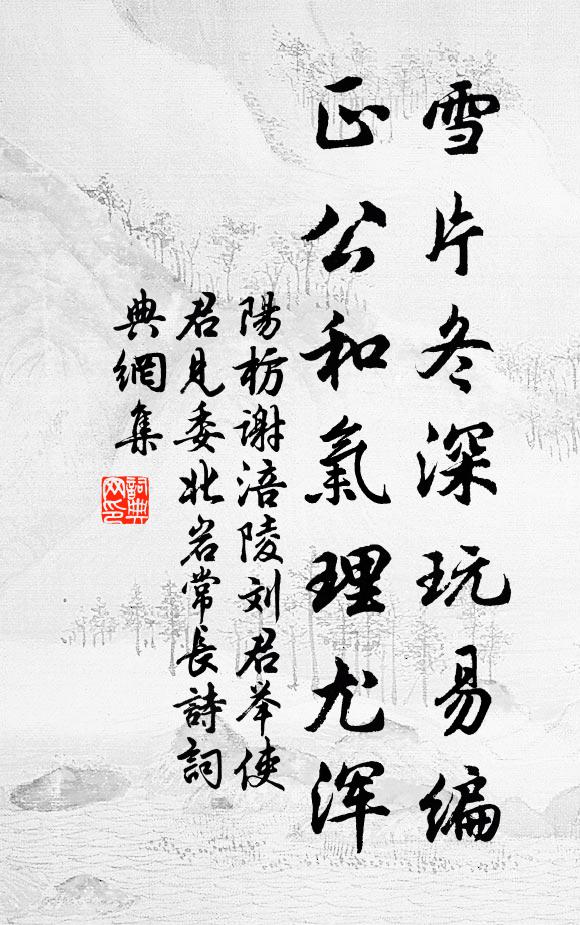 雪片冬深玩易编
正公和氣理尤浑
陽枋谢涪陵刘君举使
君見委北岩常長詩詞
典網集
詞典
网印